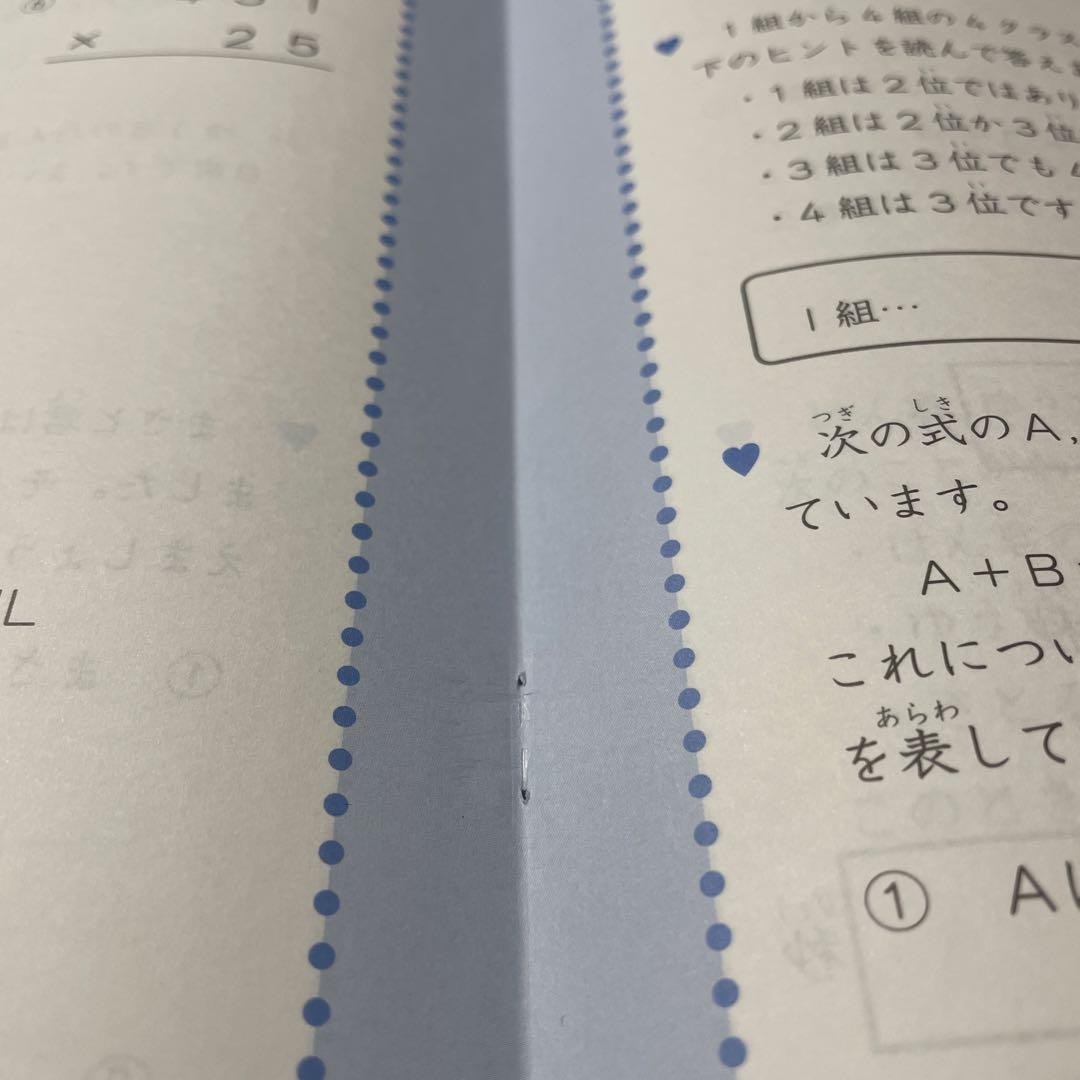 ⑥
× 25
L
1組から4組の4クラス
下のヒントを読んで答え
・1組は2位ではあり
・2組は2位か3位
・3組は3位でも4
・4組は3位です
1組…
つぎ しき
次の式のA,
ています。
A+B
これについ
あらわ
を表して
① A